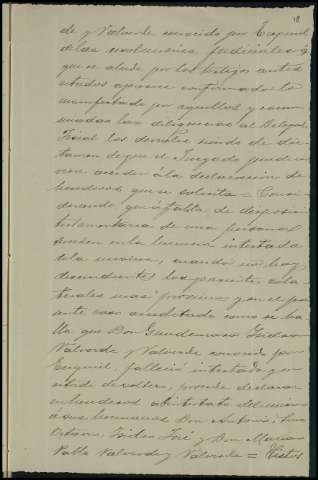 de y Valverde conocido por Ezequiel
de las               judiciales á
que se alude por los testigos antes
citados aparece confirmado lo
manifestado por aquellos y comu-
nicadas las diligencias al Delegado
Fiscal los devolvió siendo de dic-
tamen de que el Juzgado puede ser-
virse acceder á la declaración de
herederos que se solicita = Consi-
derando que á falta de disposición
testamentaria de una persona
suceden en la herencia intestada
de la misma, cuando no hay
descendientes los parientes cola-
terales mas próximos y en el pre-
ente caso acreditado como se ha-
lla que Don Gaudencio Isidoro
Valverde y Valverde conocido por
Ezequiel, falleció intestado y en
estado de soltero, procede declarar
herederos abintestato del mismo
á sus hermanos Don Antonio,
José y Don Marcos
Pablo Valverde y Valverde = Vistos